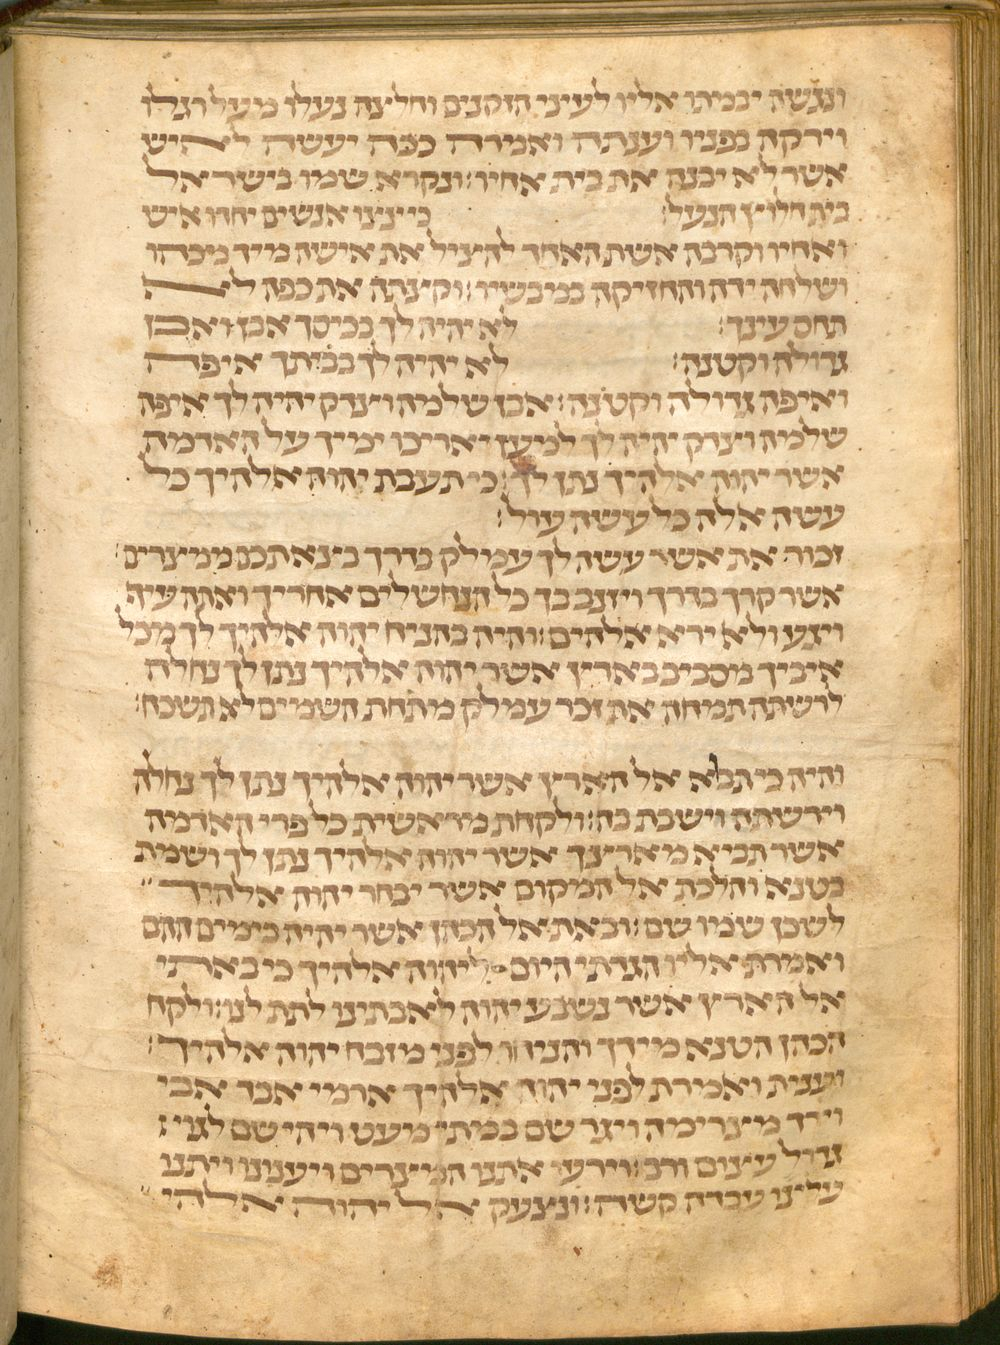 ונגשה יבמתו אליו לעיני הזקנים וחלצה נעלו מעל רגלו
וירקה בפניו וענתה ואמרה ככה יעשה לאיש
אשר לא יבנה את בית אחיו: ונקרא שמו בישראל
בית חלוץ הנעל: כי ינצו אנשים יחדו איש
ואחיו וקרבה אשת האחד להציל את אישה מיד מכהו
ושלחה ידה והחזיקה במבשיו: וקצתה את כפה לא
תחס עינך: לא יהיה לך בכיסך אבן ואבן
גדולה וקטנה: לא יהיה לך בביתך איפה
ואיפה גדולה וקטנה: אבן שלמה וצדק יהיה לך איפה
שלמה וצדק יהיה לך למען יאריכו ימיך על האדמה
אשר יהוה אלהיך נתן לך: כי תעבת יהוה אלהיך כל
עשה אלה כל עשה עול:
זכור את אשר עשה לך עמלק בדרך בצאתכם ממצרים:
אשר קרך בדרך ויזנב בך כל הנחשלים אחריך ואתה עיף
ויגע ולא ירא אלהים: והיה בהניח יהוה אלהיך לך מכל
איביך מסביב בארץ אשר יהוה אלהיך נתן לך נחלה
לרשתה תמחה את זכר עמלק מתחת השמים לא תשכח:
והיה כי תבוא אל הארץ אשר יהוה אלהיך נתן לך נחלה
וירשתה וישבת בה: ולקחת מראשית כל פרי האדמה
אשר תביא מארצך אשר יהוה אלהיך נתן לך ושמת
בטנא והלכת אל המקום אשר יבחר יהוה אלהיך
לשכן שמו שם: ובאת אל הכהן אשר יהיה בימים ההם
ואמרת אליו הגדתי היום ליהוה אלהיך כי באתי
אל הארץ אשר נשבע יהוה לאבתינו לתת לנו: ולקח
הכהן הטנא מידך והניחו לפני מזבח יהוה אלהיך:
וענית ואמרת לפני יהוה אלהיך ארמי אבד אבי
וירד מצרימה ויגר שם במתי מעט ויהי שם לגוי
גדול עצום ורב: וירעו אתנו המצרים ויענונו ויתנו
עלינו עבדה קשה: ונצעק אל יהוה אלהי